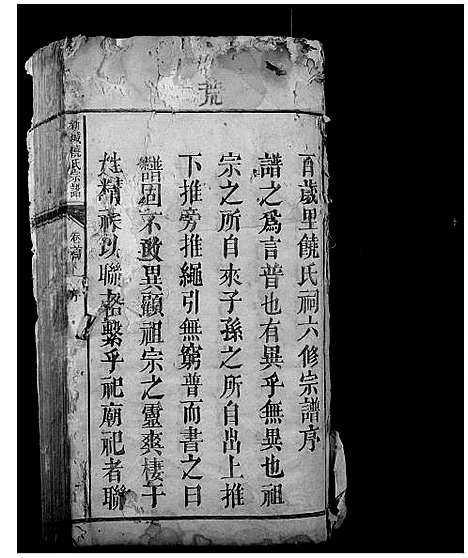 荒
百歲里饒氏祠六修宗譜序
譜之爲言普也有異乎無異也祖
宗之所自來子孫之所自出上推
下推旁推繩引無窮普而書之曰
譜固不敢異顧祖宗之靈爽棲于
姓精祿以聯格繫乎祀廟祀者聯
新城饒氏宗譜
卷首
序